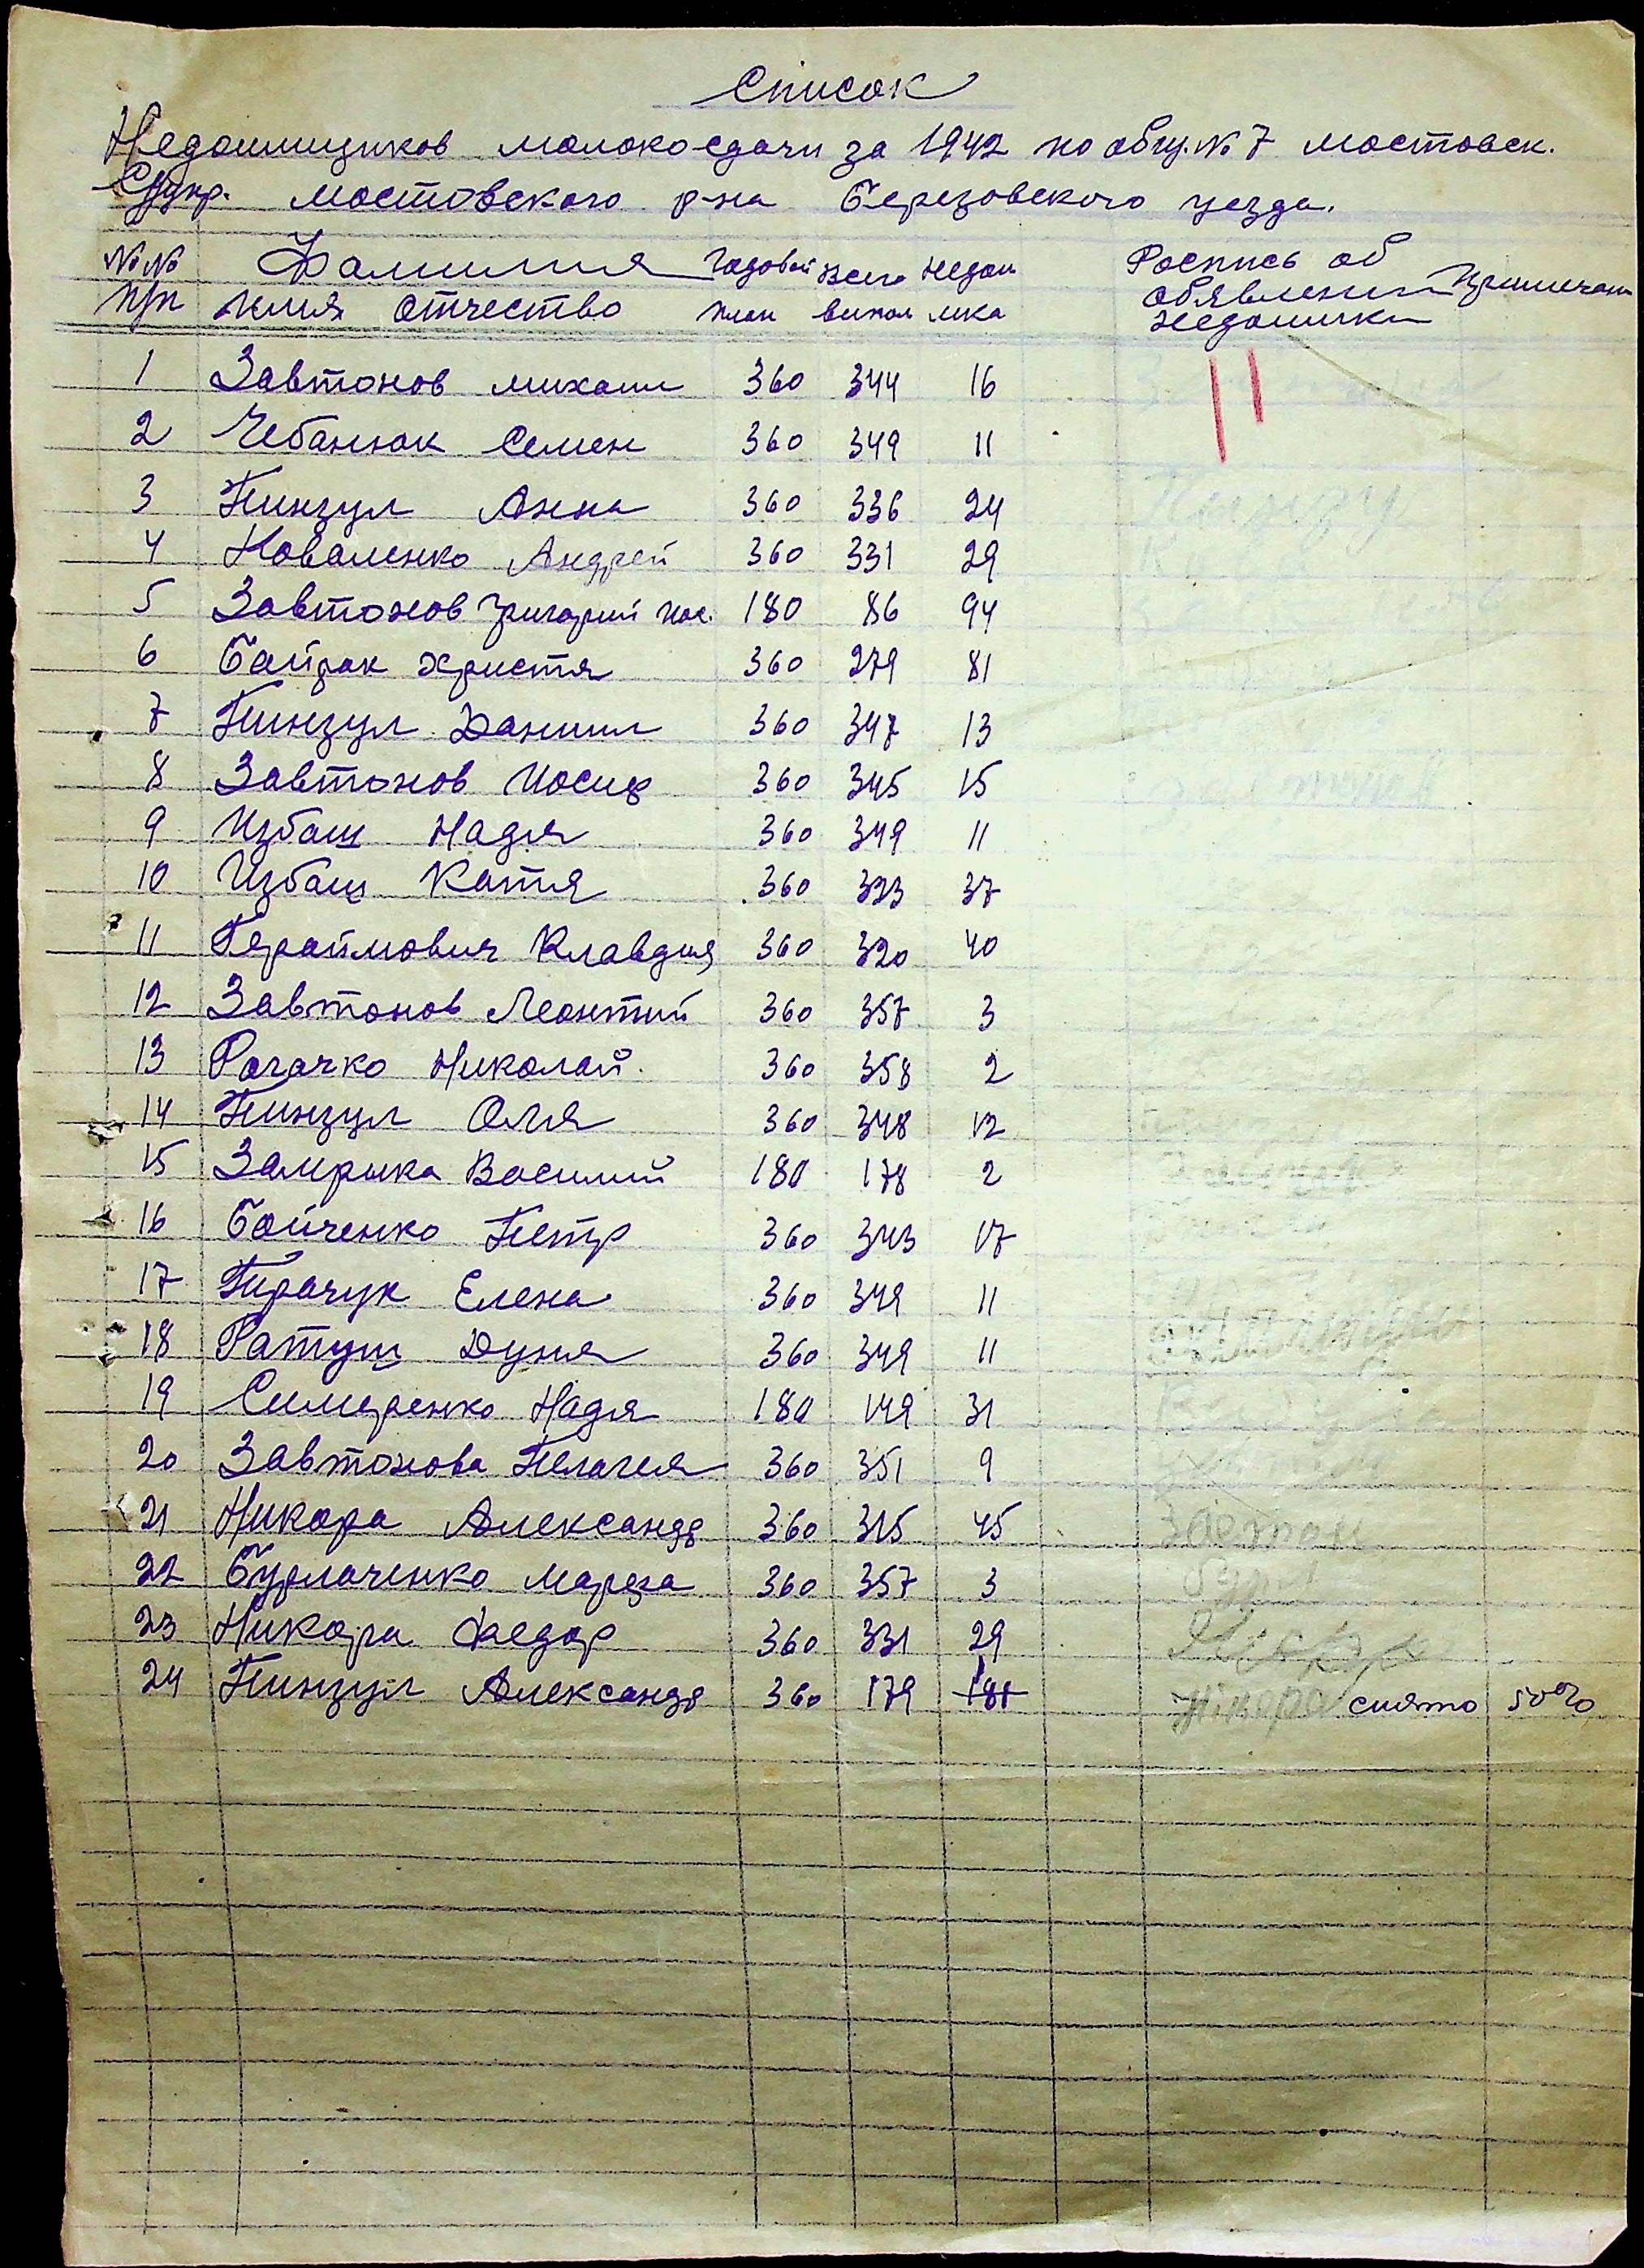 Список
Недоимщиков молоко-сдачи за 1942 по общ. № 7 мостовск.
мостовского р-на Березовского уезда.
№ № Фамилия Годовой Всего Недои Роспись об
п/п имя отчество план выпол мка обявлении Примечан
недоимки
1 Завтонов михаил 360 344 16
2 Чебанюк Семен 360 349 11
3 Пинзул Анна 360 336 24
4 Коваленко Андрей 360 331 29
5 Завтонов Григорий 180 86 94
6 Байрак христя 360 279 81
7 Пинзул Даниил 360 347 13
8 Завтонов Иосиф 360 345 15
9 Избаш Надя 360 349 11
10 Избаш Катя 360 323 37
11 Гераймович Клавдия 360 320 40
12 Завтонов Леонтий 360 357 3
13 Рогачко Николай. 360 358 2
14 Пинзул Оля 360 348 12
15 Замрыка Василий 180 178 2
16 Бойченко Петр 360 343 17
17 Пирачук Елена 360 349 11
18 Ратуш Дуня 360 349 11
19 Симеренко Надя 180 149 31
20 Завтонова Пелагея 360 351 9
21 Никора Александр 360 315 45 Завтон
22 Бурлаченко марфа 360 357 3
23 Никора Федор 360 331 29
24 Пинзул Александр 360 179 181 Нікора снято 50%